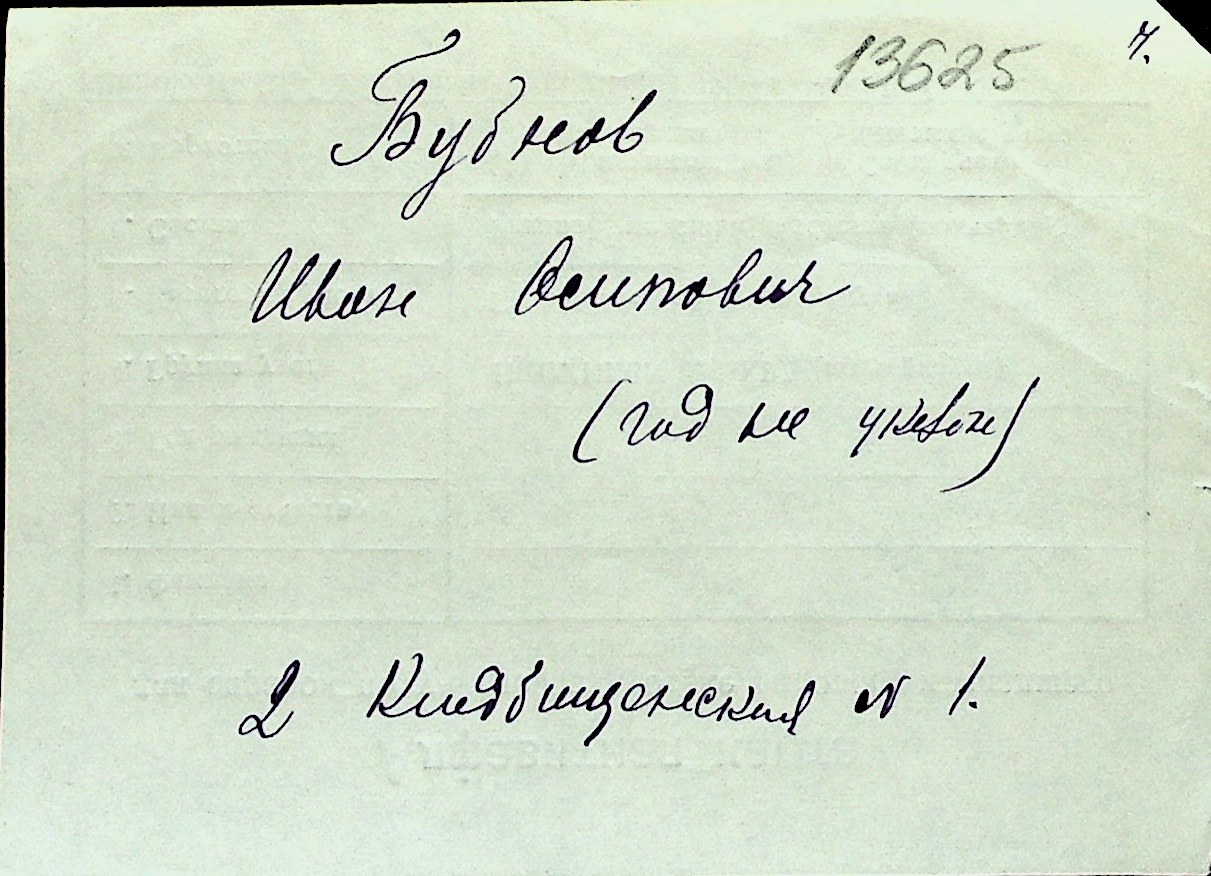 13625
ч.
Бубнов
Иван Осипович
(год не указан)
2 Кладбищенская N 1.